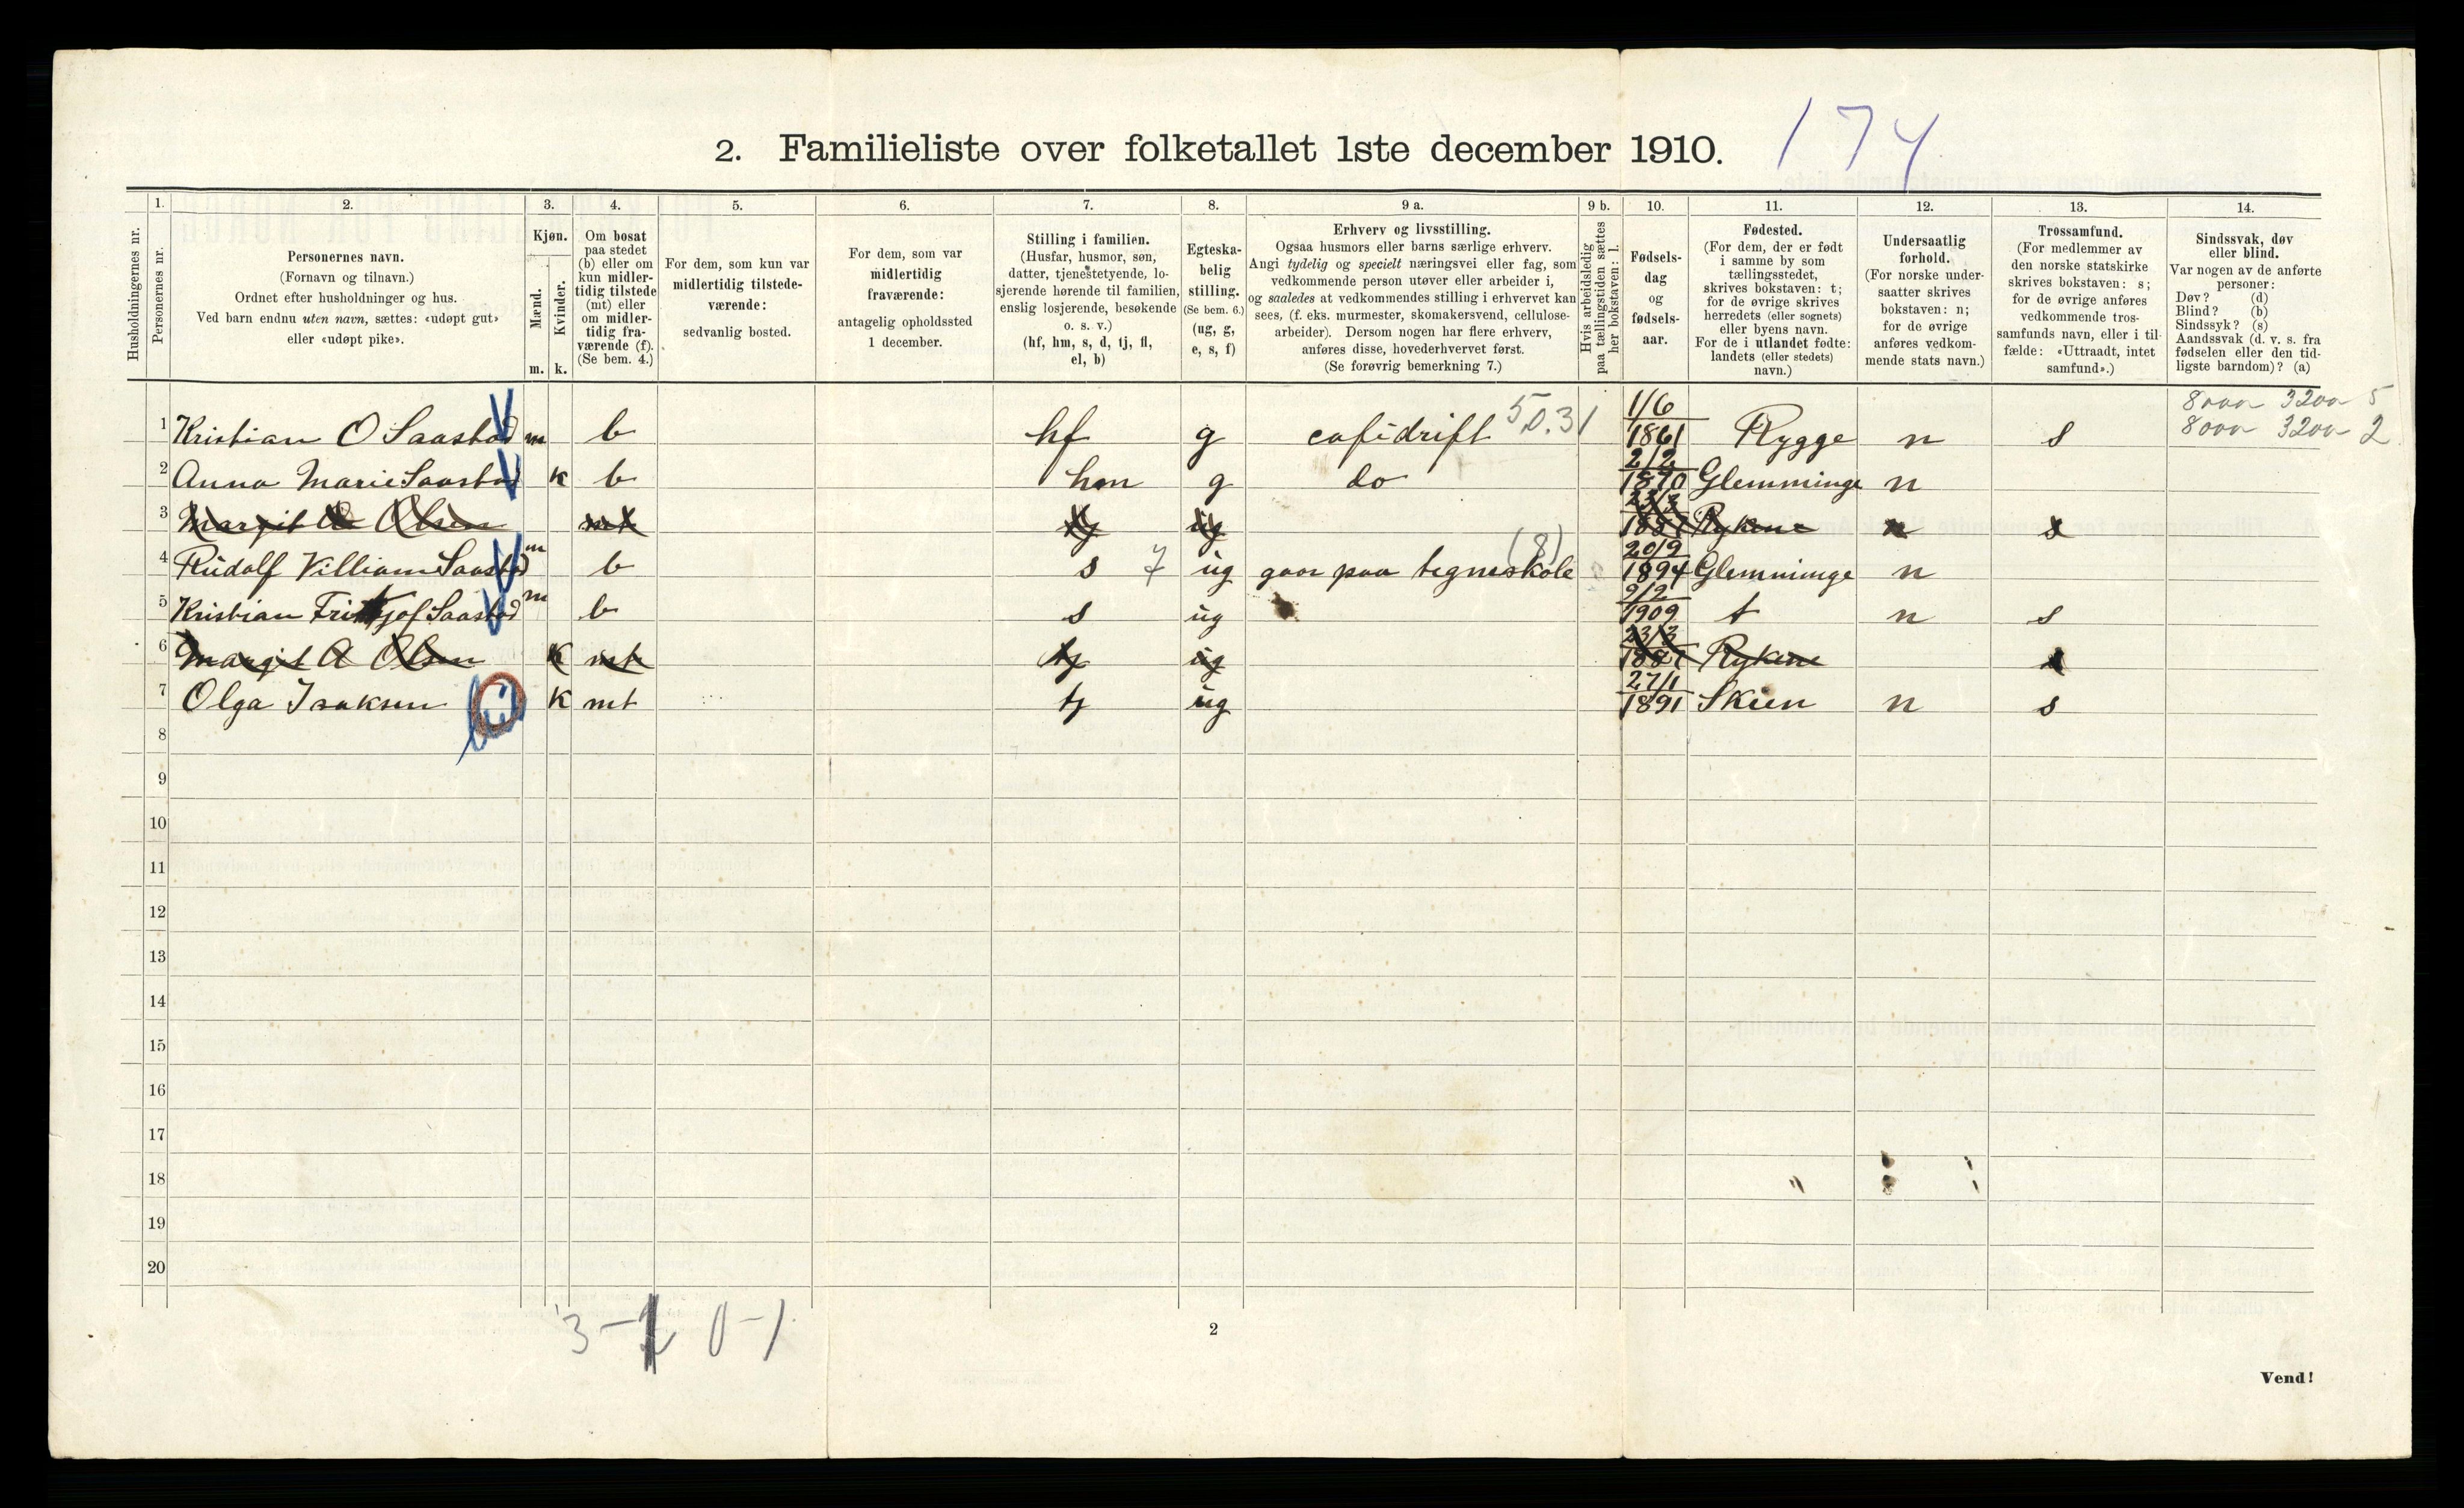 2. Familieliste over folketallet 1ste december 1910. 174
Husholdningernes nr.
1. Personernes nr.
2. Personernes navn.
(Fornavn og tilnavn.)
Ordnet efter husholdninger og hus.
Ved barn endnu uten navn, sættes: «udøpt gut»
eller «udøpt pike».
3. Kjøn.
Mænd. Kvinder.
m. k.
4. Om bosat
paa stedet
(b) eller om
kun midler-
tidig tilstede
(mt) eller
om midler-
tidig fra-
værende (f).
(Se bem. 4.)
5. For dem, som kun var
midlertidig tilstede-
værende:
sedvanlig bosted.
6. For dem, som var
midlertidig
fraværende:
antagelig opholdssted
1 december.
7. Stilling i familien.
(Husfar, husmor, søn,
datter, tjenestetyende, lo-
sjerende hørende til familien,
enslig losjerende, besøkende
o. s. v.)
(hf, hm, s, d, tj, fl,
el, b)
8. Egteska-
belig
stilling.
(Se bem. 6.)
(ug, g,
e, s, f)
9 a. Erhverv og livsstilling.
Ogsaa husmors eller barns særlige erhverv.
Angi tydelig og specielt næringsvei eller fag, som
vedkommende person utøver eller arbeider i,
og saaledes at vedkommendes stilling i erhvervet kan
sees, (f. eks. murmester, skomakersvend, cellulose-
arbeider). Dersom nogen har flere erhverv,
anføres disse, hovederhvervet først.
(Se forøvrig bemerkning 7.)
9 b. Hvis arbeidsledig
paa tællingstiden sættes
her bokstaven: l.
10. Fødsels-
dag
og
fødsels-
aar.
11. Fødested.
(For dem, der er født
i samme by som
tællingsstedet,
skrives bokstaven: t;
for de øvrige skrives
herredets (eller sognets)
eller byens navn.
For de i utlandet fødte:
landets (eller stedets)
navn.)
12. Undersaatlig
forhold.
(For norske under-
saatter skrives
bokstaven: n;
for de øvrige
anføres vedkom-
mende stats navn.)
13. Trossamfund.
(For medlemmer av
den norske statskirke
skrives bokstaven: s;
for de øvrige anføres
vedkommende tros-
samfunds navn, eller i til-
fælde: «Uttraadt, intet
samfund».)
14. Sindssvak, døv
eller blind.
Var nogen av de anførte
personer:
Døv? (d)
Blind? (b)
Sindssyk? (s)
Aandssvak (d. v. s. fra
fødselen eller den tid-
ligste barndom)? (a)
1 Kristian O Saastad m b hf g cafédrift 50.31 1/6 1861 Rygge n s 8000 3200 5
8000 3200 2
2 Anna Marie Saastad k b hm g do 2/2 1870 Glemminge n
3 Margit A Olsen mt tj ug 23/3 1887 Rykene n s
4 Rudolf Villiam Saastad m b s 7 ug gaar paa tegneskole (8) 20/9 1894 Glemminge n
5 Kristian Frittjof Saastad m b s ug 9/2 1909 t n s
6 Margit A Olsen k mt tj ug 23/3 1887 Rykene s
7 Olga Isaksen k mt tj ug 27/1 1891 Skien n s
8
9
10
11
12
13
14
15
16
17
18
19
20
3-1 0-1
2
Vend!